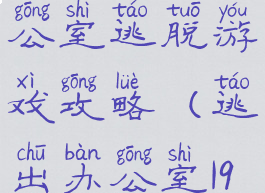 gōng shì táo tuō yóu
公室逃脱游
xì gōng lüè táo
戏攻略（逃
chū bàn gōng shì
出办公室19